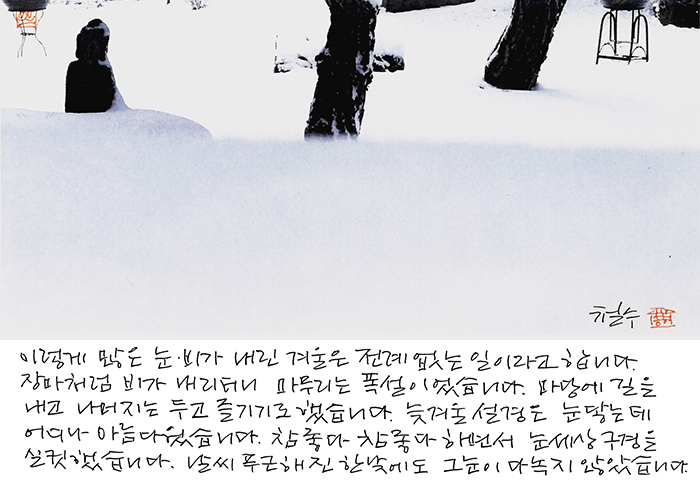 철수
이렇게 많은 눈·비가 내린 겨울은 전례 없는 일이라고 합니다.
장마처럼 비가 내리더니 마무리는 폭설이었습니다. 마당에 길을
내고 나머지는 두고 즐기기로 했습니다. 늦겨울 설경은 눈닿는데
어디나 아름다웠습니다. 참 좋다 참 좋다 하면서 눈세상 구경을
실컷했습니다. 날씨 푸근해진 한낮에도 그눈이 다녹지 않았습니다.